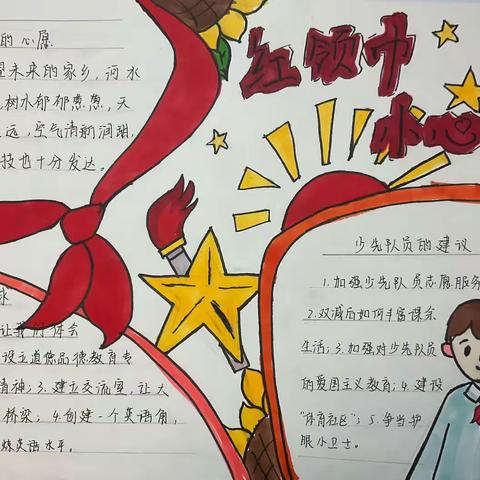 红领巾
小心
的心愿
望未来的家乡，河水
树木郁郁葱葱，天
远，空气清新润甜，
技也十分发达。
少先队员的建议
1.加强少先队员志愿服务
2.双减后如何丰富课余
生活；3.加强对少先队员
的爱国主义教育；4.建设
"体育社区"；5.争当护
眼小卫士。
求
让我们体会
设立道德品德教育专
精神；3.建立交流室，让大
桥梁；4.创建一个英语角，
炼英语水平。